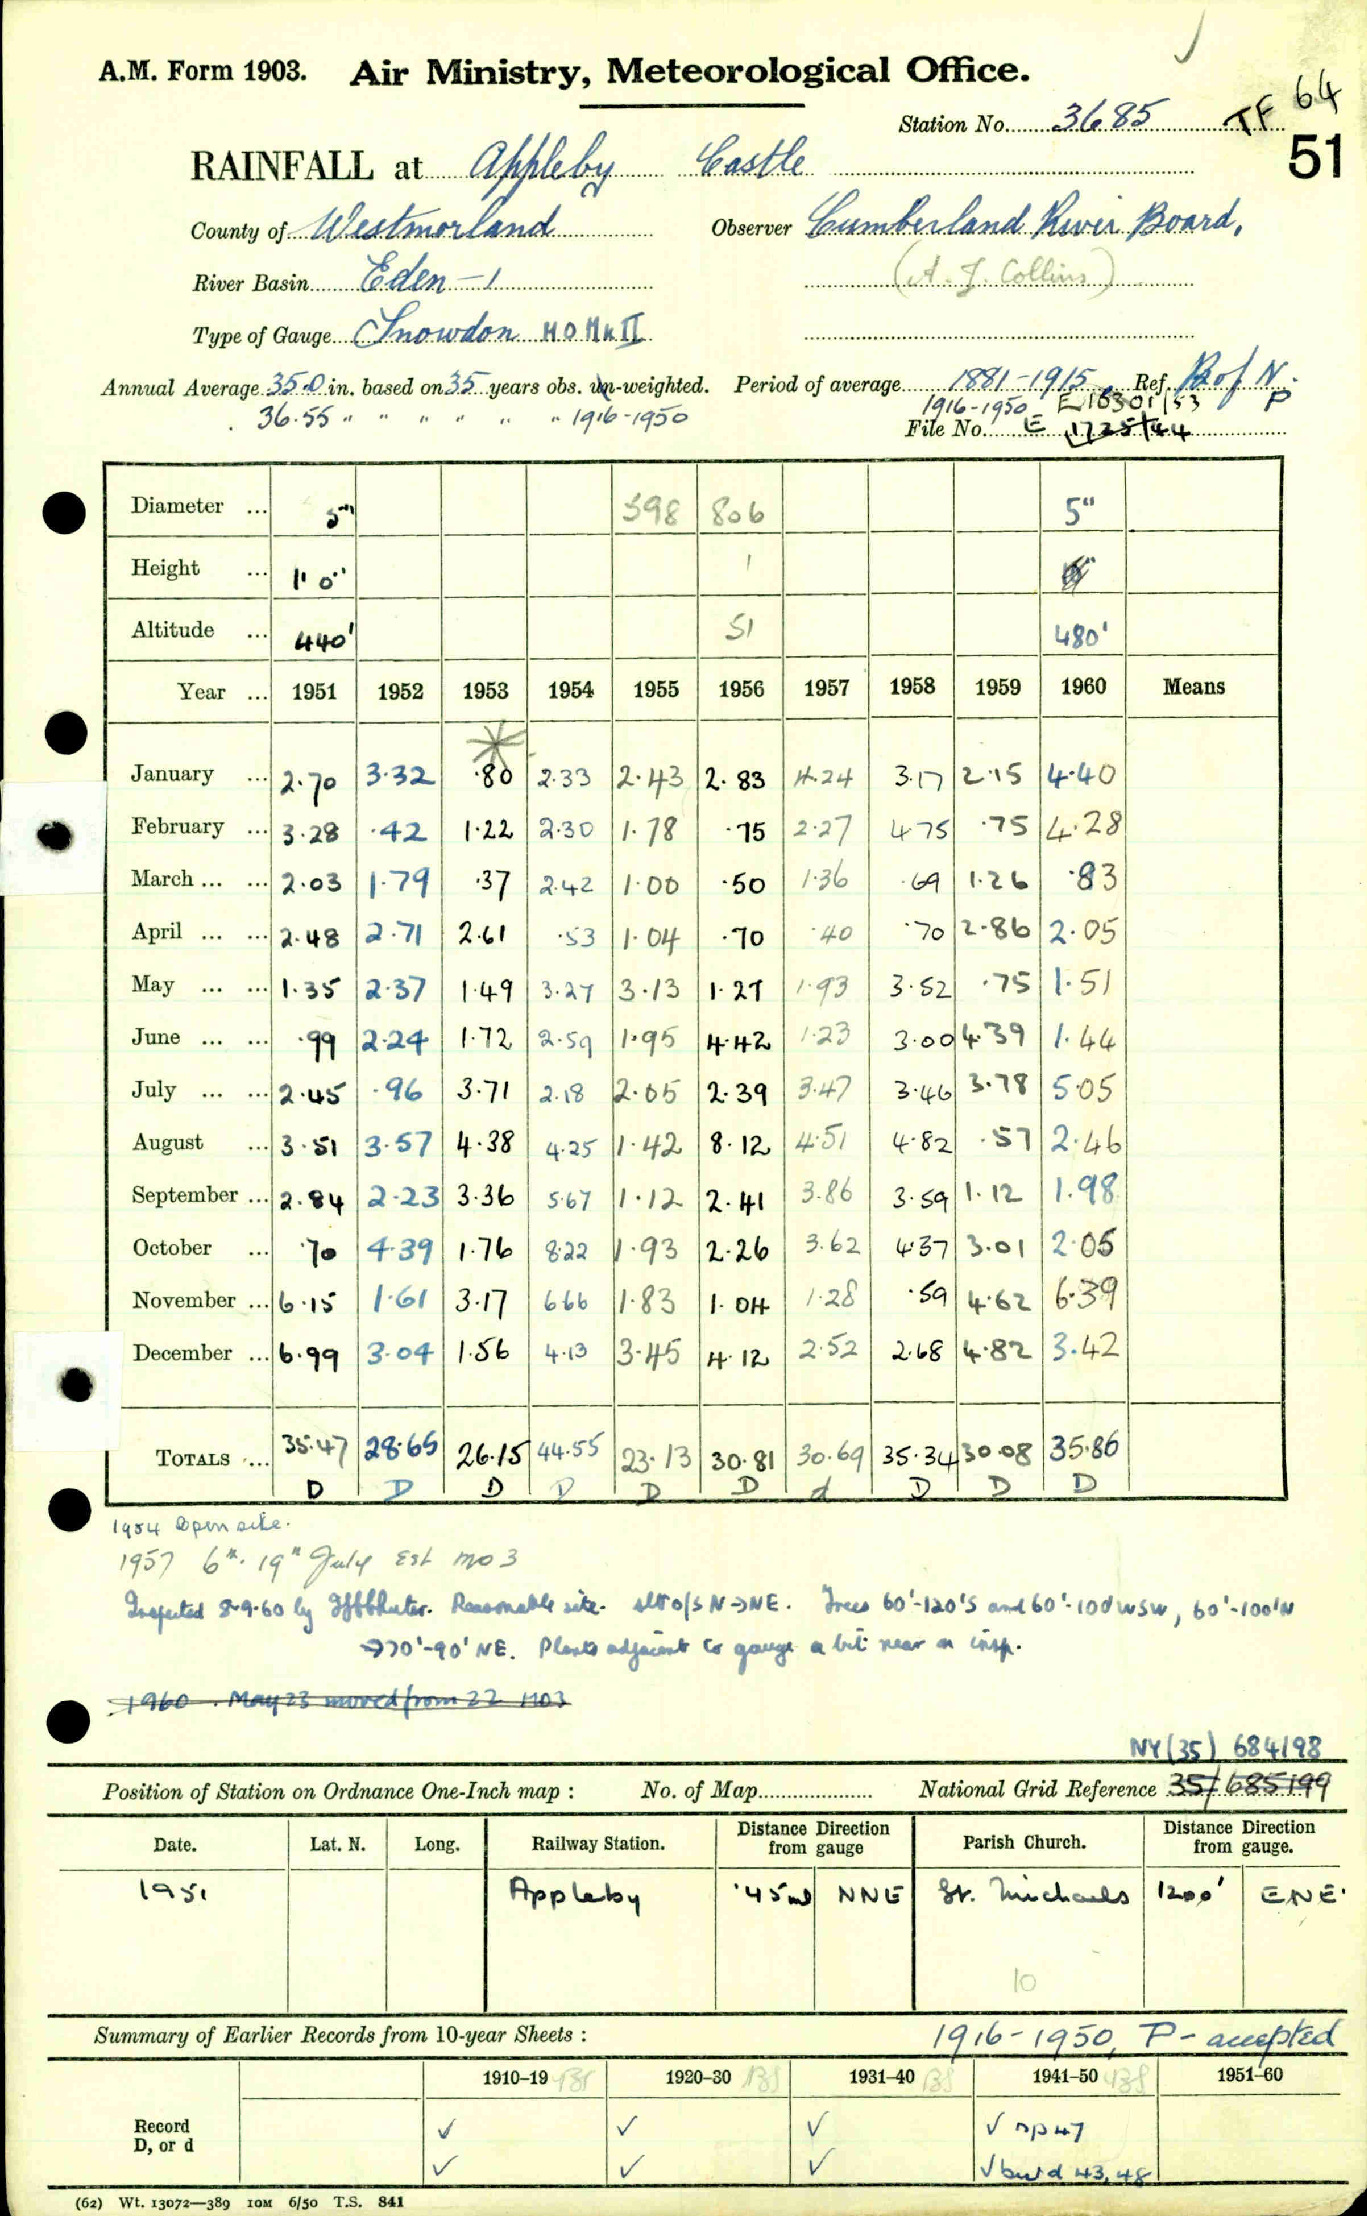 A.M. Form 1903. Air Ministry, Meteorological Office.
Station No. 3685 TF 64
51
RAINFALL at Appleby Castle
County of Westmorland Observer Cumberland River Board,
River Basin Eden -1 (A. J. Collins)
Type of Gauge Snowdon MO Mk II
Annual Average 35.0 in. based on 35 years obs. un-weighted. Period of average 1881-1915 Ref. B of N. P
36.55 " " " " " " 1916-1950 1916-1950 E 16301/53
File No. E 1725/44
Diameter ... 5" 398 806 5"
Height ... 1' 0" 1
Altitude ... 440' 51 480'
Year ... 1951 1952 1953 1954 1955 1956 1957 1958 1959 1960 Means
January ... 2.70 3.32 .80 2.33 2.43 2.83 4.24 3.17 2.15 4.40
February ... 3.28 .42 1.22 2.30 1.78 .75 2.27 4.75 .75 4.28
March ... ... 2.03 1.79 .37 2.42 1.00 .50 1.36 .69 1.26 .83
April ... ... 2.48 2.71 2.61 .53 1.04 .70 .40 .70 2.86 2.05
May ... ... 1.35 2.37 1.49 3.27 3.13 1.27 1.93 3.52 .75 1.51
June ... ... .99 2.24 1.72 2.59 1.95 4.42 1.23 3.00 4.39 1.44
July ... ... 2.45 .96 3.71 2.18 2.05 2.39 3.47 3.46 3.78 5.05
August ... 3.51 3.57 4.38 4.25 1.42 8.12 4.51 4.82 .57 2.46
September ... 2.84 2.23 3.36 5.67 1.12 2.41 3.86 3.59 1.12 1.98
October ... .70 4.39 1.76 8.22 1.93 2.26 3.62 4.37 3.01 2.05
November ... 6.15 1.61 3.17 6.66 1.83 1.04 1.28 .59 4.62 6.39
December ... 6.99 3.04 1.56 4.13 3.45 4.12 2.52 2.68 4.82 3.42
TOTALS ... 35.47 28.65 26.15 44.55 23.13 30.81 30.69 35.34 30.08 35.86
D D D D D D d D D D
1954 Open site.
1957 6th-19th July Est MO3
Inspected 8-9-60 by Reasonable site. alt o/s N→NE. Trees 60'-120'S and 60'-100'WSW, 60'-100'N
→70'-90' NE. Plants adjacent to gauge a bit near on insp.
1960. May 23 moved from 22 MO3
NY(35) 684198
Position of Station on Ordnance One-Inch map : No. of Map National Grid Reference 35/685199
Date. Lat. N. Long. Railway Station. Distance Direction from gauge Parish Church. Distance Direction from gauge.
1951 Appleby .45m NNE St. Michaels 1200' ENE.
10
Summary of Earlier Records from 10-year Sheets : 1916-1950, P - accepted
1910-19 1920-30 1931-40 1941-50 1951-60
Record ✓ ✓ ✓ ✓ 47
D, or d ✓ ✓ ✓ ✓ but d 43, 48
(62) Wt. 13072—389 10M 6/50 T.S. 841